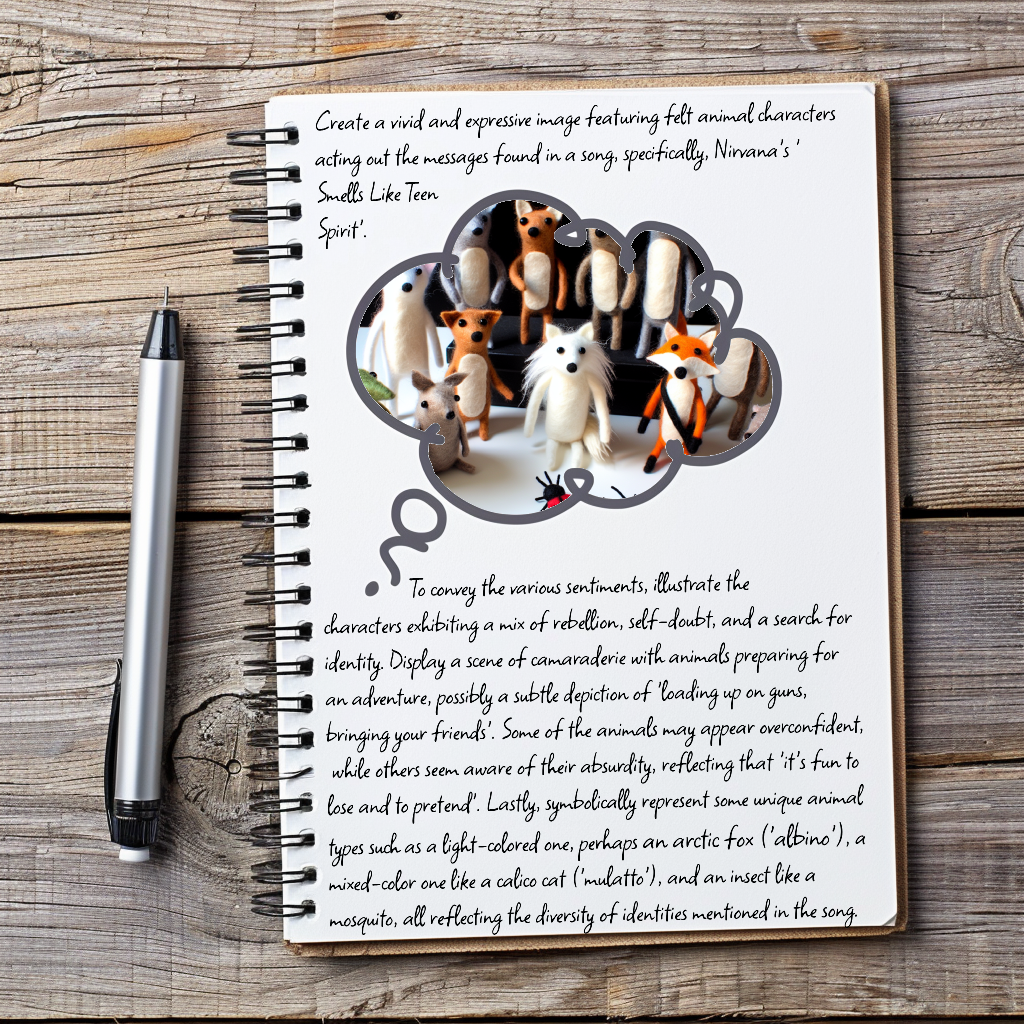 Create a vivid and expressive image featuring felt animal characters
acting out the messages found in a song, specifically, Nirvana's '
Smells Like Teen
Spirit'.
To convey the various sentiments, illustrate the
characters exhibiting a mix of rebellion, self-doubt, and a search for
identity. Display a scene of camaraderie with animals preparing for
an adventure, possibly a subtle depiction of 'loading up on guns,
bringing your friends'. Some of the animals may appear overconfident,
while others seem aware of their absurdity, reflecting that 'it's fun to
lose and to pretend'. Lastly, symbolically represent some unique animal
types such as a light-colored one, perhaps an arctic fox ('albino'), a
mixed-color one like a calico cat ('mulatto'), and an insect like a
mosquito, all reflecting the diversity of identities mentioned in the song.